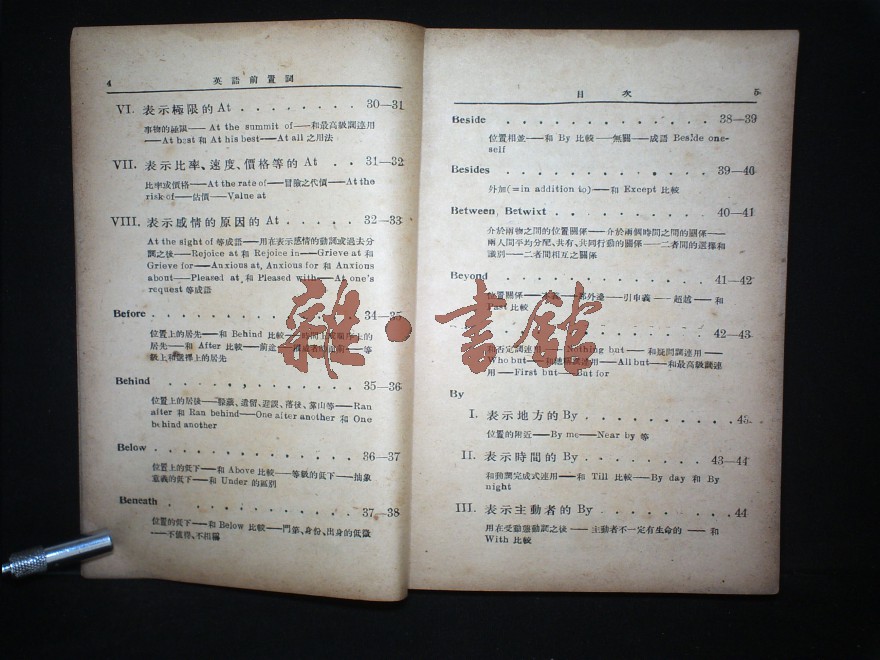 4 英語前置詞
VI. 表示極限的 At . . . . . . . . 30—31
事物的極限—— At the summit of——和最高級詞連用
——At best 和 At his best——At all 之用法
VII. 表示比率、速度、價格等的 At . . 31—32
比率或價格——At the rate of——冒險之代價——At the
risk of——估價——Value at
VIII. 表示感情的原因的 At . . . . . 32—33
At the sight of 等成語——用在表示感情的動詞或過去分
詞之後——Rejoice at 和 Rejoice in——Grieve at 和
Grieve for——Anxious at, Anxious for 和 Anxious
about——Pleased at 和 Pleased with——At one's
request 等成語
Before . . . . . . . . . 34—35
位置上的居先——和 Behind 比較——時間上或順序上的
居先——和 After 比較——前途——等
級上和選擇上的居先
Behind . . . . . . . . . 35—36
位置上的居後——隱藏、遺留、遲誤、落後、靠山等——Ran
after 和 Ran behind——One after another 和 One
behind another
Below . . . . . . . . . 36—37
位置上的低下——和 Above 比較——等級的低下——抽象
意義的低下——和 Under 的區別
Beneath . . . . . . . . . 37—38
位置的低下——和 Below 比較——門第、身份、出身的低微
——不值得、不相稱
目次 5
Beside . . . . . . . . . 38—39
位置相並——和 By 比較——無關——成語 Beside one-
self
Besides . . . . . . . . . 39—40
外加(=in addition to)——和 Except 比較
Between, Betwixt . . . . . . . . 40—41
介於兩物之間的位置關係——介於兩個時間之間的關係——
兩人間平均分配、共有、共同行動的關係——二者間的選擇和
識別——二者間相互之關係
Beyond . . . . . . . . . 41—42
位置關係——外邊——引申義——超越——和
Past 比較
. . . . . . . . . 42—43
和否定詞連用——Nothing but——和疑問詞連用——
Who but——All but——和最高級詞連
用——First but——But for
By
I. 表示地方的 By . . . . . . . . 43
位置的附近——By me——Near by 等
II. 表示時間的 By . . . . . . . 43—44
和動詞完成式連用——和 Till 比較——By day 和 By
night
III. 表示主動者的 By . . . . . . . 44
用在受動態動詞之後——主動者不一定有生命的——和
With 比較
雜·書館